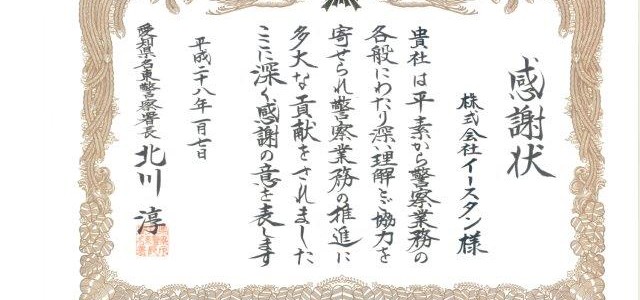 感謝状
株式会社イースタン様
貴社は平素から警察業務の
各般にわたり深い理解とご協力を
寄せられ警察業務の推進に
多大な貢献をされました
ここに深く感謝の意を表します
平成二十八年一月七日
愛知県名東警察署長
北川淳